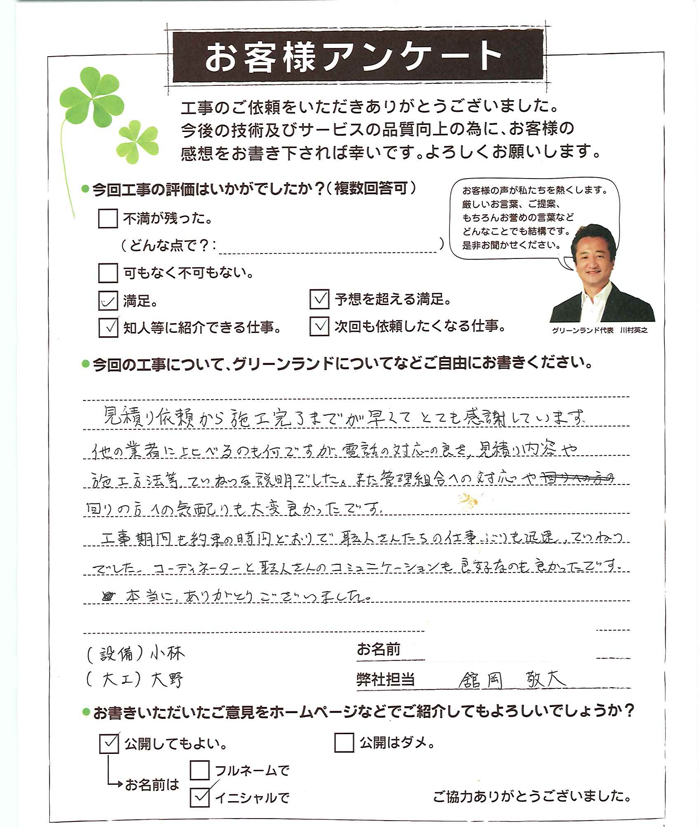 お客様アンケート
工事のご依頼をいただきありがとうございました。
今後の技術及びサービスの品質向上の為に、お客様の
感想をお書き下されば幸いです。よろしくお願いします。
●今回工事の評価はいかがでしたか？(複数回答可)
不満が残った。
(どんな点で？: )
可もなく不可もない。
満足。 予想を超える満足。
知人等に紹介できる仕事。 次回も依頼したくなる仕事。
お客様の声が私たちを熱くします。
厳しいお言葉、ご提案、
もちろんお誉めの言葉など
どんなことでも結構です。
是非お聞かせください。
グリーンランド代表 川村英之
●今回の工事について、グリーンランドについてなどご自由にお書きください。
見積り依頼から施工完了までが早くてとても感謝しています。
他の業者に比べるのも何ですが、電話の対応の良さ、見積り内容や
施工方法等、ていねいな説明でした。また管理組合への対応や
回りの方への気配りも大変良かったです。
工事期間も約束の時間どおりで職人さんたちの仕事ぶりも迅速、ていねい
でした。コーディネーターと職人さんのコミュニケーションも良好なのも良かったです。
本当に、ありがとうございました。
(設備) 小林
(大工) 大野
お名前
弊社担当 舘岡 敬大
●お書きいただいたご意見をホームページなどでご紹介してもよろしいでしょうか？
公開してもよい。 公開はダメ。
お名前は
フルネームで
イニシャルで
ご協力ありがとうございました。